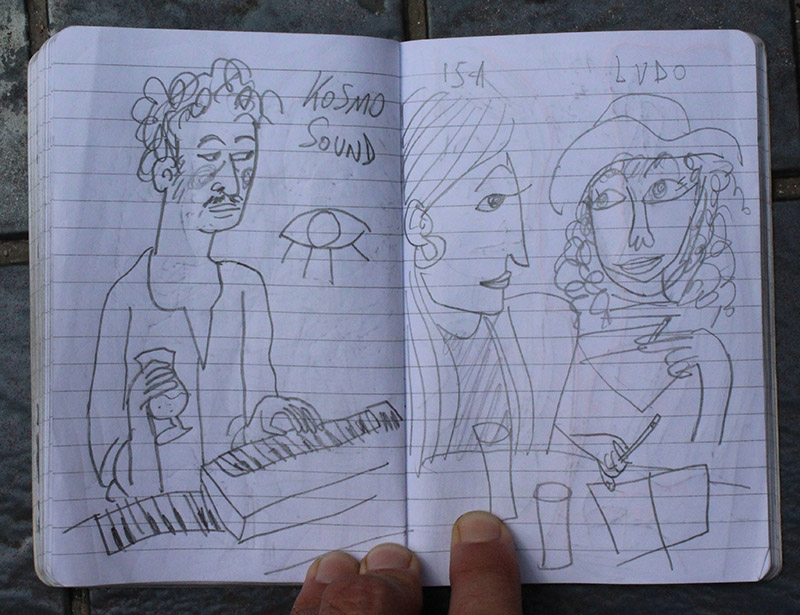 KOSMO
SOUND
ISA
LUDO